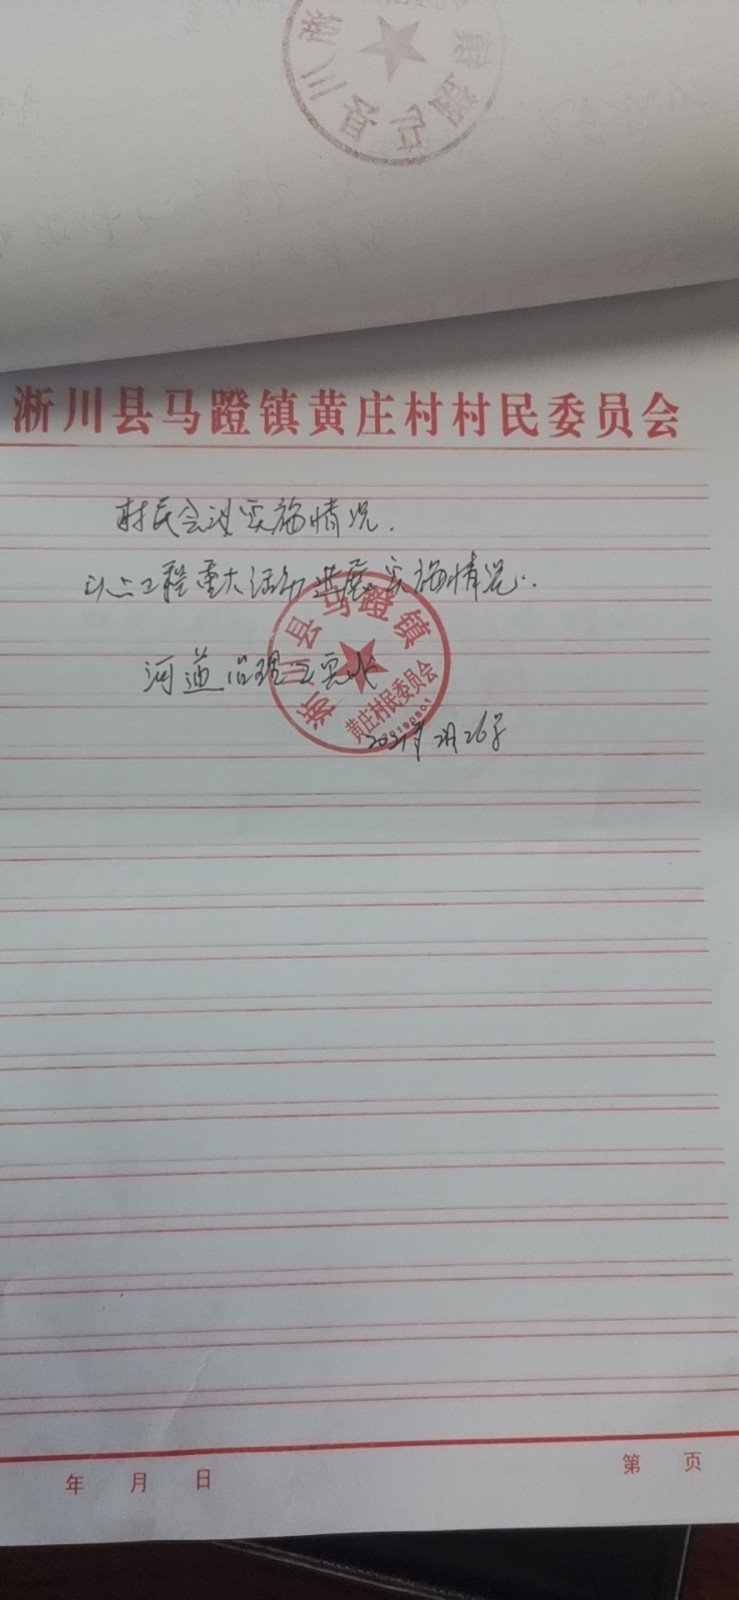 淅川县马蹬镇黄庄村村民委员会
村民会议实施情况.
以上工程重大活动进展实施情况..
河道治理
淅川县马蹬镇
黄庄村民委员会
2月26号
年 月 日
第 页